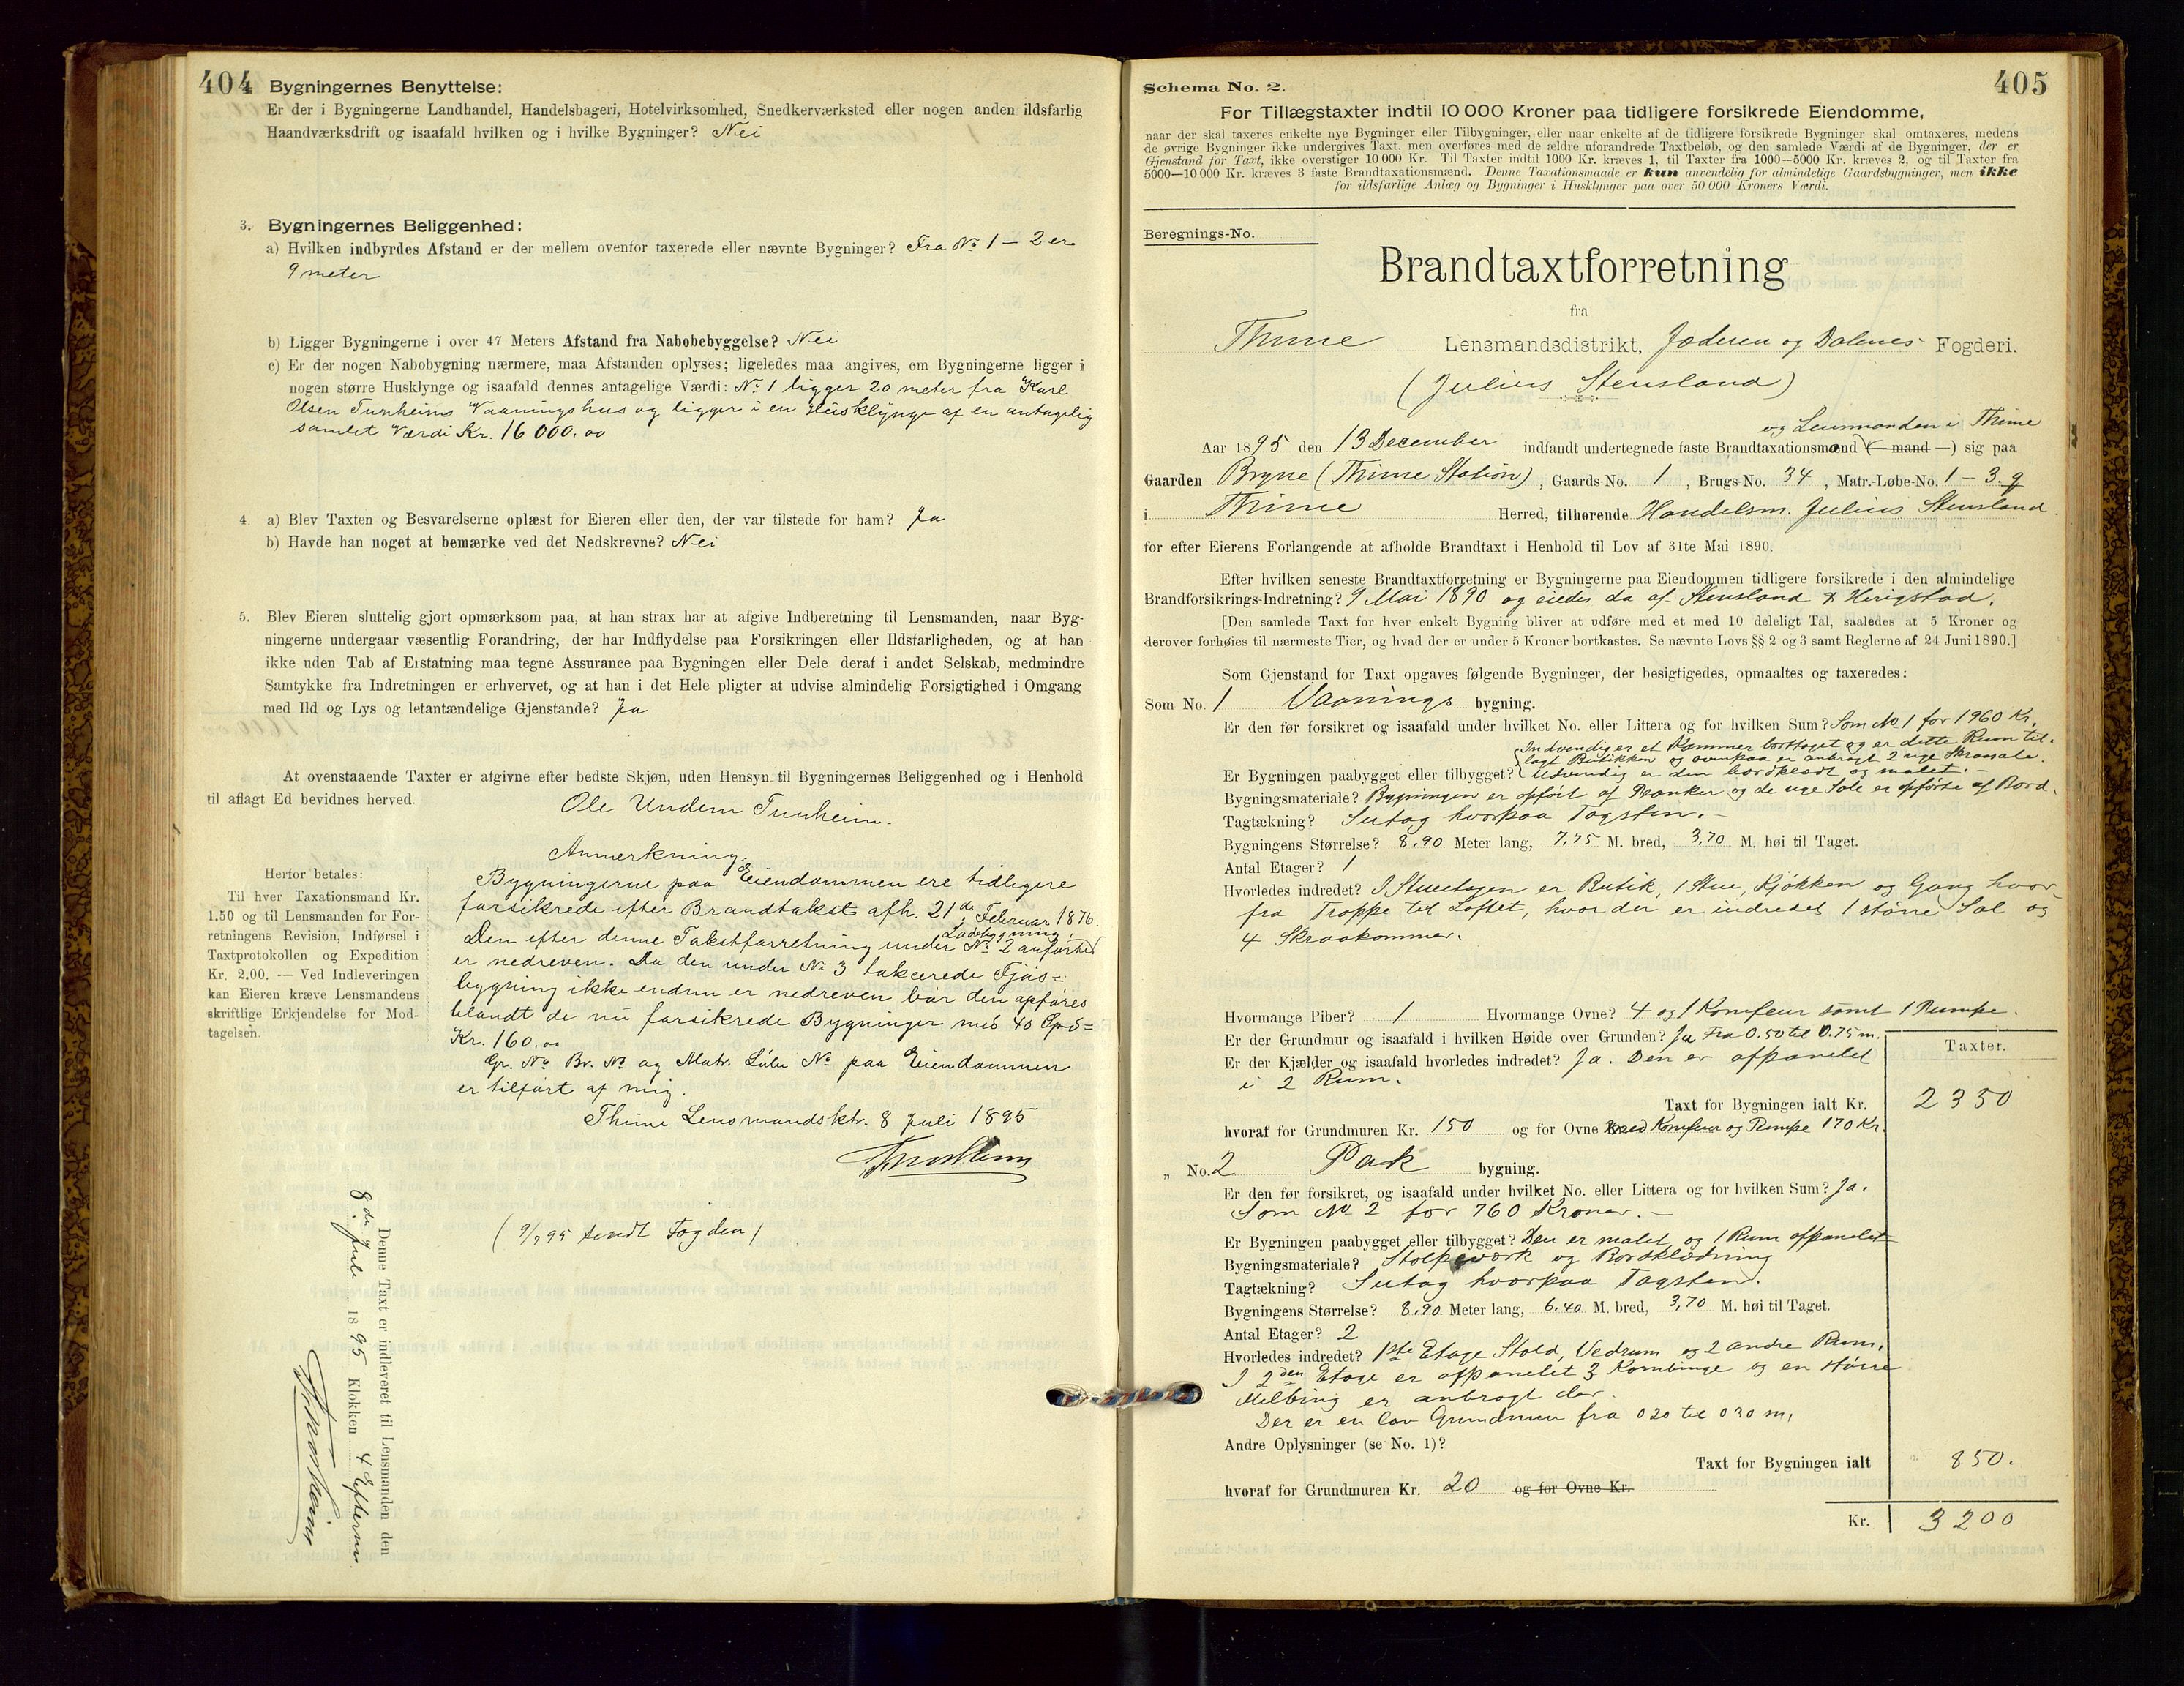 404 Bygningernes Benyttelse:
Er der i Bygningerne Landhandel, Handelsbageri, Hotelvirksomhed, Snedkerværksted eller nogen anden ildsfarlig
Haandværksdrift og isaafald hvilken og i hvilke Bygninger? Nei
3. Bygningernes Beliggenhed:
a) Hvilken indbyrdes Afstand er der mellem ovenfor taxerede eller nævnte Bygninger? Fra No. 1 – 2 er
9 meter
b) Ligger Bygningerne i over 47 Meters Afstand fra Nabobebyggelse? Nei
c) Er der nogen Nabobygning nærmere, maa Afstanden oplyses; ligeledes maa angives, om Bygningerne ligger i
nogen større Husklynge og isaafald dennes antagelige Værdi: No. 1 ligger 20 meter fra Karl
Olsen Tunheims Vaaningshus og ligger i en Husklynge af en antagelig
samlet Værdi Kr. 16000.00
4. a) Blev Taxten og Besvarelserne oplæst for Eieren eller den, der var tilstede for ham? Ja
b) Havde han noget at bemærke ved det Nedskrevne? Nei
5. Blev Eieren sluttelig gjort opmærksom paa, at han strax har at afgive Indberetning til Lensmanden, naar Byg-
ningerne undergaar væsentlig Forandring, der har Indflydelse paa Forsikringen eller Ildsfarligheden, og at han
ikke uden Tab af Erstatning maa tegne Assurance paa Bygningen eller Dele deraf i andet Selskab, medmindre
Samtykke fra Indretningen er erhvervet, og at han i det Hele pligter at udvise almindelig Forsigtighed i Omgang
med Ild og Lys og letantændelige Gjenstande? Ja
At ovenstaaende Taxter er afgivne efter bedste Skjøn, uden Hensyn til Bygningernes Beliggenhed og i Henhold
til aflagt Ed bevidnes herved.
Ole Undem Tunheim.
Anmerkning.
Bygningerne paa Eiendommen ere tidligere
forsikrede efter Brandtakst afh. 21de Februar 1876.
Den efter denne Takstforretning under No. 2 anførte Ladebygning
er nedreven. Da den under No 3 takserede Fjøs=
bygning ikke endnu er nedreven bør den opføres
blandt de nu forsikrede Bygninger med 40 Spd =
Kr. 160.00
Gr. No Br. No og Matr. Løbe No paa Eiendommen
er tilført af mig.
Thime Lensmandsktr. 8 Juli 1895
Herfor betales:
Til hver Taxationsmand Kr.
1.50 og til Lensmanden for For-
retningens Revision, Indførsel i
Taxtprotokollen og Expedition
Kr. 2.00. — Ved Indleveringen
kan Eieren kræve Lensmandens
skriftlige Erkjendelse for Mod-
tagelsen.
(9/7 95 sendt Fogden)
Denne Taxt er indleveret til Lensmanden den
8de Juli 1895 Klokken 4 Efterm.
405
Schema No. 2.
For Tillægstaxter indtil 10 000 Kroner paa tidligere forsikrede Eiendomme,
naar der skal taxeres enkelte nye Bygninger eller Tilbygninger, eller naar enkelte af de tidligere forsikrede Bygninger skal omtaxeres, medens
de øvrige Bygninger ikke undergives Taxt, men overføres med de ældre uforandrede Taxtbeløb, og den samlede Værdi af de Bygninger, der er
Gjenstand for Taxt, ikke overstiger 10 000 Kr. Til Taxter indtil 1000 Kr. kræves 1, til Taxter fra 1000—5000 Kr. kræves 2, og til Taxter fra
5000—10 000 Kr. kræves 3 faste Brandtaxationsmænd. Denne Taxationsmaade er kun anvendelig for almindelige Gaardsbygninger, men ikke
for ildsfarlige Anlæg og Bygninger i Husklynger paa over 50 000 Kroners Værdi.
Beregnings-No.
Brandtaxtforretning
fra
Thime Lensmandsdistrikt, Jæderen og Dalenes Fogderi.
(Julius Stensland)
og Lensmanden i Thime
Aar 1895 den 13 December indfandt undertegnede faste Brandtaxationsmænd (— mand —) sig paa
Gaarden Bryne (Thime Station), Gaards-No. 1, Brugs-No. 34, Matr.-Løbe-No. 1 – 3. g
i Thime Herred, tilhørende Handelsm. Julius Stensland.
for efter Eierens Forlangende at afholde Brandtaxt i Henhold til Lov af 31te Mai 1890.
Efter hvilken seneste Brandtaxtforretning er Bygningerne paa Eiendommen tidligere forsikrede i den almindelige
Brandforsikrings-Indretning? 9 Mai 1890 og eiedes da af Stensland & Herigstad.
[Den samlede Taxt for hver enkelt Bygning bliver at udføre med et med 10 deleligt Tal, saaledes at 5 Kroner og
derover forhøies til nærmeste Tier, og hvad der er under 5 Kroner bortkastes. Se nævnte Lovs §§ 2 og 3 samt Reglerne af 24 Juni 1890.]
Som Gjenstand for Taxt opgaves følgende Bygninger, der besigtigedes, opmaaltes og taxeredes:
Som No. 1 Vaanings bygning.
Er den før forsikret og isaafald under hvilket No. eller Littera og for hvilken Sum? Som No. 1 for 1960 Kr.
Indvendig er et Kammer borttaget og er dette Rum til-
lagt Butikken og ovenpaa er anbragt 2 nye
Er Bygningen paabygget eller tilbygget? Udvendig er den bordklædt og malet. –
Bygningsmateriale? Bygningen er opført af Planker og de nye Sale er opførte af Bord.
Tagtækning? Sutag hvorpaa Tagsten. –
Bygningens Størrelse? 8,90 Meter lang, 7,75 M. bred, 3,70 M. høi til Taget.
Antal Etager? 1
Hvorledes indredet? I Stueetagen er Butik, 1 Stue, Kjøkken og Gang hvor-
fra Trappe til Loftet, hvor der er indredet 1 større Sal og
4 Skraakammer.
Hvormange Piber? 1 Hvormange Ovne? 4 og 1 Komfeur samt 1 Pumpe.
Er der Grundmur og isaafald i hvilken Høide over Grunden? Ja Fra 0.50 til 0.75 m.
Er der Kjælder og isaafald hvorledes indredet? Ja. Den er afpanelet
i 2 Rum.
Taxter.
Taxt for Bygningen ialt Kr. 2350
hvoraf for Grundmuren Kr. 150 og for Ovne med Komfeur og Pumpe 170 Kr.
„ No. 2 Pak bygning.
Er den før forsikret, og isaafald under hvilket No. eller Littera og for hvilken Sum? Ja.
Som No. 2 for 760 Kroner. –
Er Bygningen paabygget eller tilbygget? Den er malet og 1 Rum afpanelet
Bygningsmateriale? Stolpeværk og Bordklædning
Tagtækning? Sutag hvorpaa Tagsten.
Bygningens Størrelse? 8,90 Meter lang, 6.40 M. bred, 3,70 M. høi til Taget.
Antal Etager? 2
Hvorledes indredet? 1ste Etage Stald, Vedrum og 2 andre Rum.
I 2den Etage er afpanelet 3 Kornbinge og en større
Melbing er anbragt der.
Der er en lav Grundmur fra 0 20 til 0 30 m.
Andre Oplysninger (se No. 1)?
Taxt for Bygningen ialt 850.
hvoraf for Grundmuren Kr. 20 og for Ovne Kr.
Kr. 3200